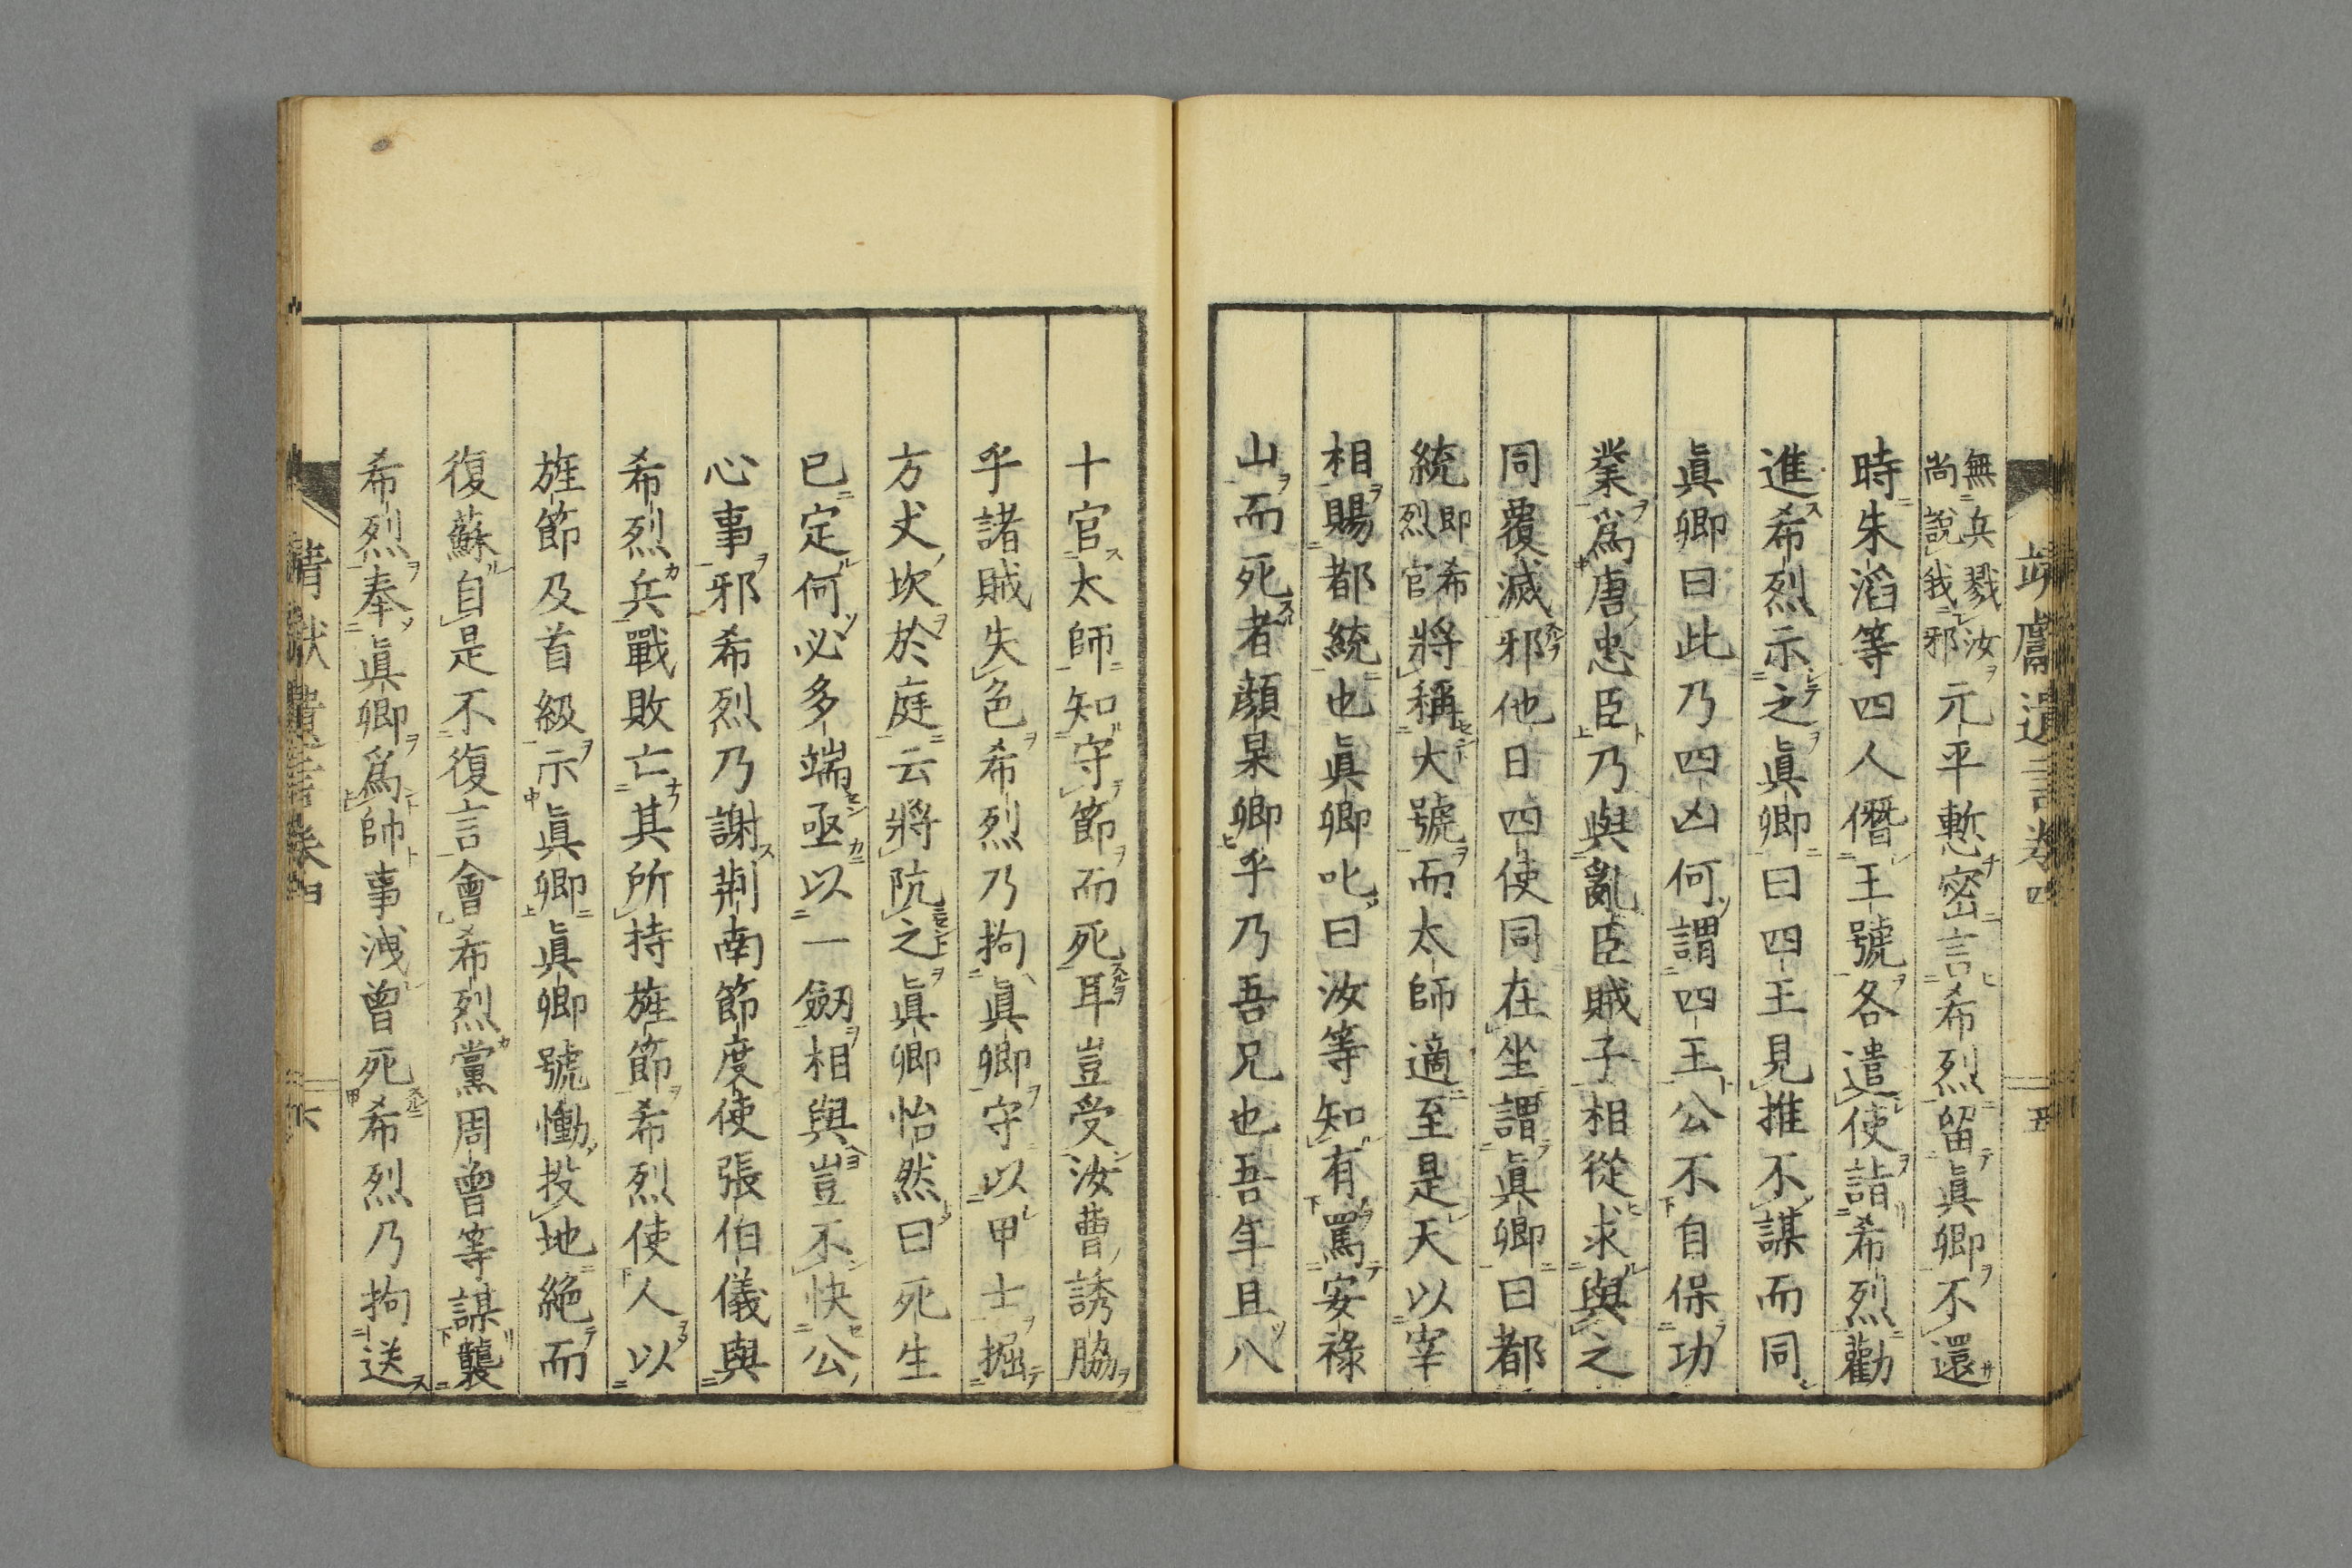 靖獻遺言卷四
五
無兵戮汝
尚說我邪
元平慙密言希烈留眞卿不還
時朱滔等四人僭王號各遣使詣希烈勸
進希烈示之眞卿曰四王見推不謀而同
眞卿曰此乃四凶何謂四王公不自保功
業爲唐忠臣乃與亂臣賊子相從求與之
同覆滅邪他日四使同在坐謂眞卿曰都
統
卽希
烈官
將稱大號而太師適至是天以宰
相賜都統也眞卿叱曰汝等知有罵安祿
山而死者顏杲卿乎乃吾兄也吾年且八
十官太師知守節而死耳豈受汝曹誘脇
乎諸賊失色希烈乃拘眞卿守以甲士掘
方丈坎於庭云將阬之眞卿怡然曰死生
已定何必多端亟以一劒相與豈不快公
心事邪希烈乃謝荆南節度使張伯儀與
希烈兵戰敗亡其所持旌節希烈使人以
旌節及首級示眞卿眞卿號慟投地絶而
復蘇自是不復言會希烈黨周曾等謀襲
希烈奉眞卿爲帥事洩曾死希烈乃拘送
靖獻遺言卷四
六